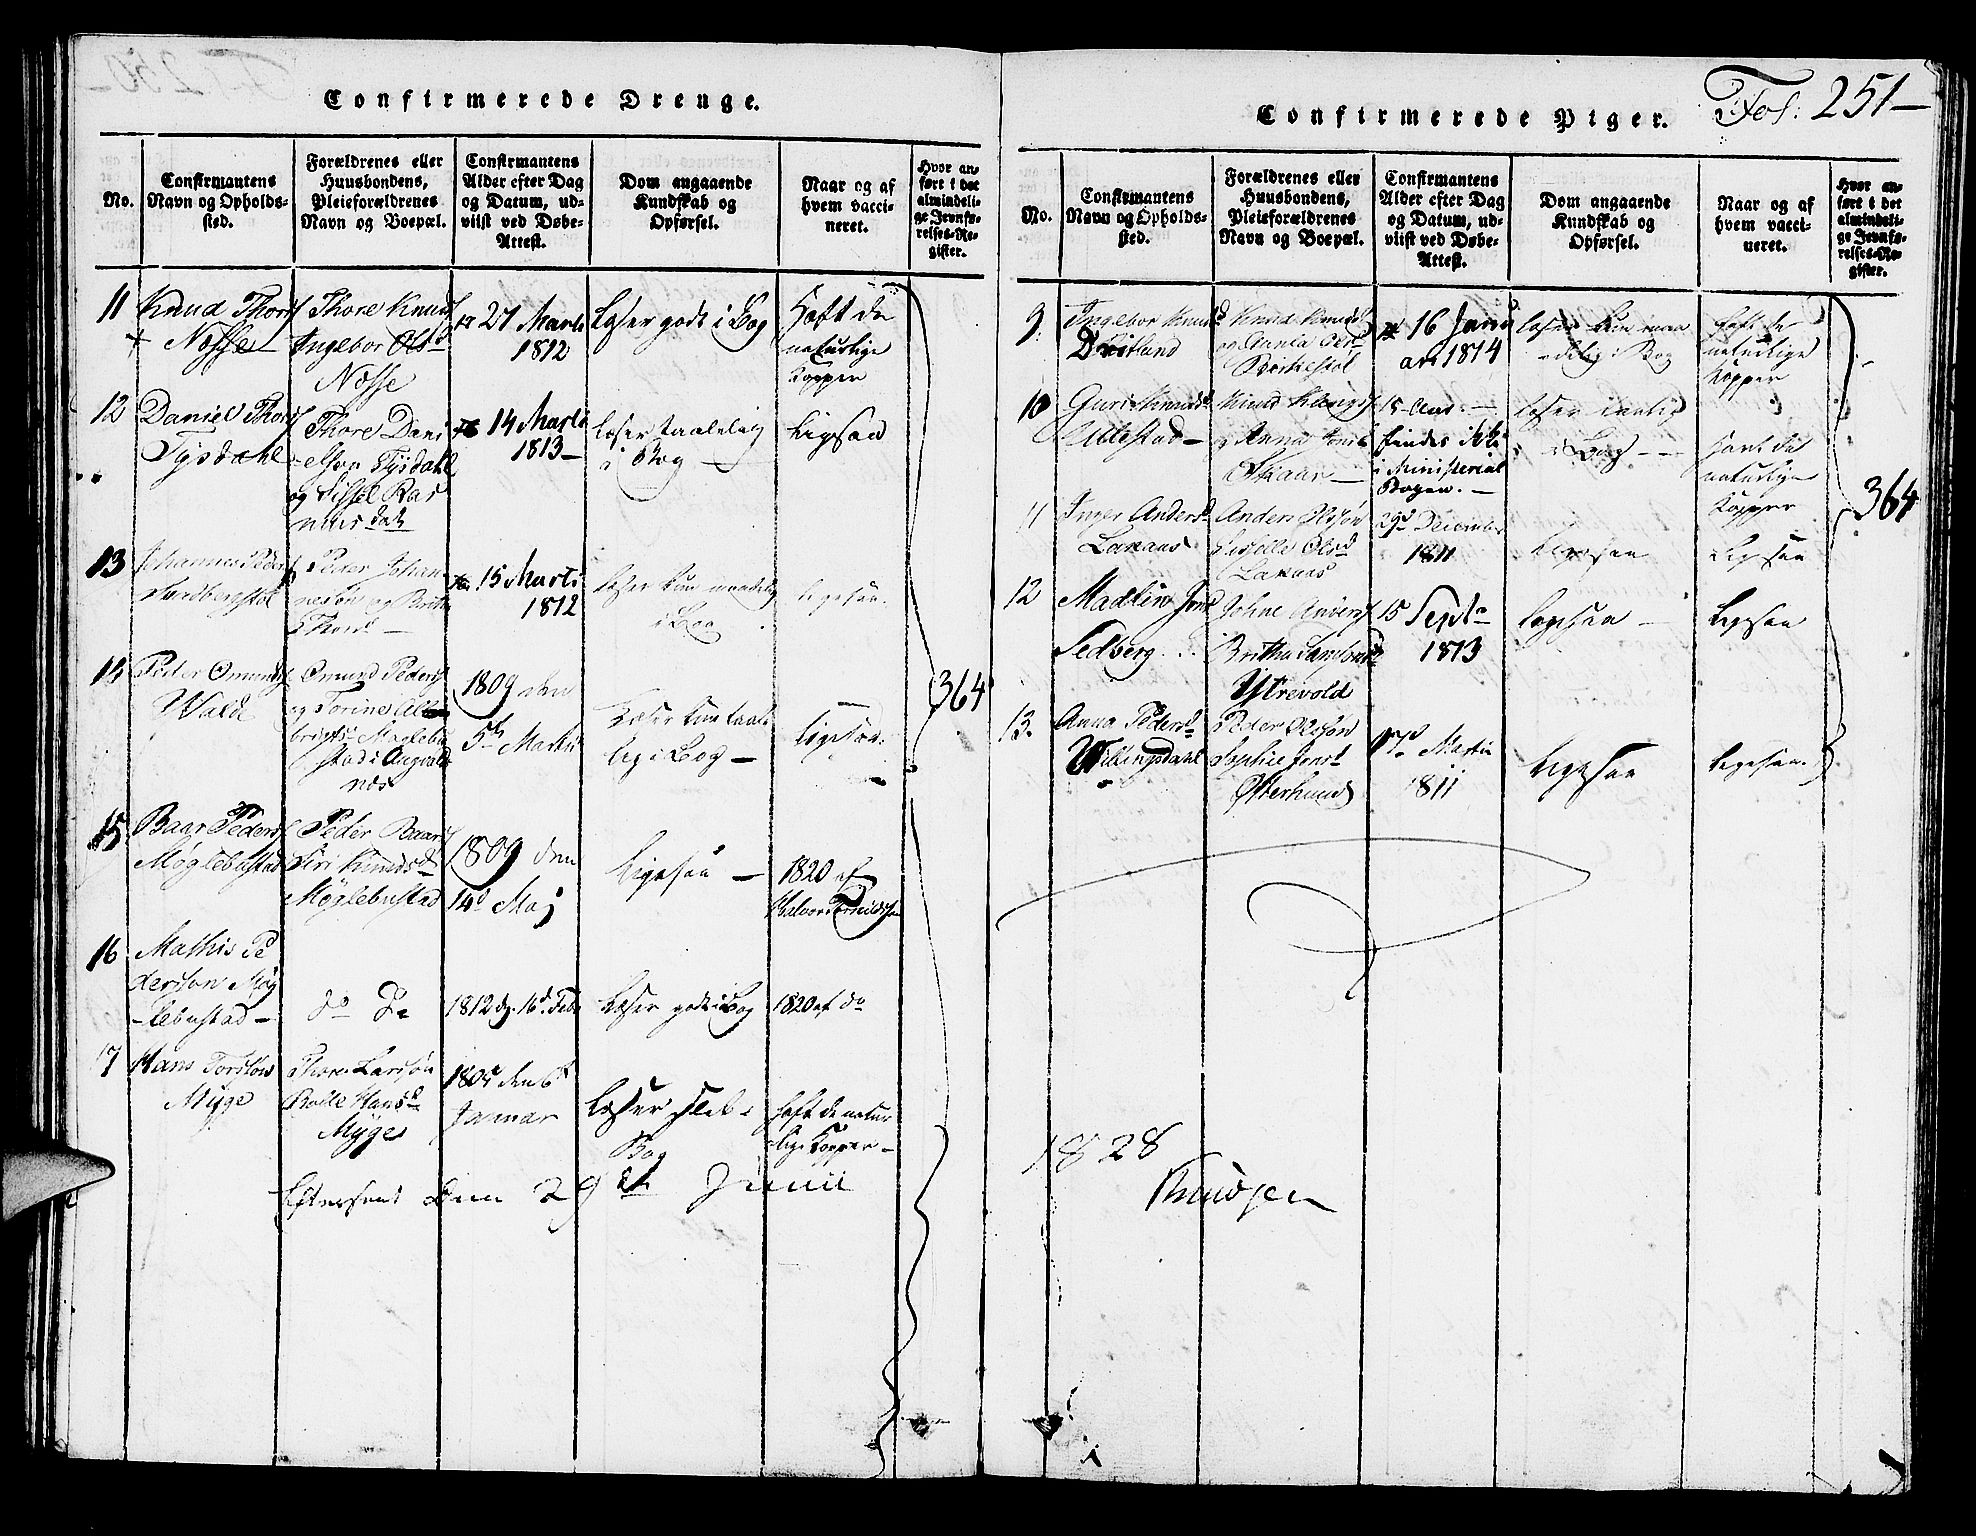 Confirmerede Drenge.
No.
Confirmantens
Navn og Opholds-
sted.
Forældrenes eller
Huusbondens,
Pleieforældrenes
Navn og Boepæl.
Confirmantens
Alder efter Dag
og Datum, ud-
viist ved Døbe-
Attest.
Dom angaaende
Kundskab og
Opførsel.
Naar og af
hvem vacci-
neret.
Hvor an-
ført i det
almindeli-
ge Jevnfø-
relses-Re-
gister.
11
Knud Thors
Nosse
Thore Knud
Ingebor Olsd
Nosse
27 Marti
1812
Læser godt i Bog
Haft de
naturlige
Kopper
12
Daniel Thors
Tysdahl
Thore Dani
elsøn Tysdahl
og Sissel Ras
musdatt
14 Marti
1813
Læser taalelig
i Bog
Ligesaa
13
Johannes Peders
Peder Johan
nesøn og Britte
Thords
15 Marti
1812
Læser kun maadelig
i Bog
Ligesaa
14
Peder Omunds
Wald
Omund Peders
og Torine
1809 den
5th Martii
Læser kun taale
lig i Bog
Ligesaa
364
15
Baar Peders
Møglebustad
Peder Baars
Siri Knudsd
Møglebustad
1809 den
14d Maj
Ligesaa
1820 af
16
Mathis Pe
dersøn Møg
lebustad
do Do
1812 d. 16d Febr
Læser godt i Bog
1820 af do
17
Hans Torsøn
Myge
Thore Larsøn
Hansd
Myge
den 6t
Januar
Læser slet i
Bog
haft de natur
lige Kopper
den 29de Junii
Fol: 251
Confirmerede Piger.
No.
Confirmantens
Navn og Opholds-
sted.
Forældrenes eller
Huusbondens,
Pleieforældrenes
Navn og Boepæl.
Confirmantens
Alder efter Dag
og Datum, ud-
viist ved Døbe-
Attest.
Dom angaaende
Kundskab og
Opførsel.
Naar og af
hvem vacci-
neret.
Hvor an-
ført i det
almindeli-
ge Jevnfø-
relses-Re-
gister.
9
Ingebor Knuds
Knud Knuds
16 Janu
ar 1814
læser kun maa
delig i Bog
haft de
naturlige
Kopper
10
Guri Knudsd
Ullestad
Knud
og Anna
Skaar
15 Aar
findes ikke
i Ministerial
Bogen.
læser
i Bog
Havt de
naturlige
Kopper
11
Inger Andersd
Anders Olsøn
Olsd
29d December
1811
Ligesaa
Ligesaa
364
12
Madlin Jons
Sedberg
Johne Anders
Britha
Ytrevold
15 Septr
1813
Ligesaa
Ligesaa
13.
Anna Pedersd
Peder Olsøn
Sophie
Østerhuus
Martii
1811
Ligesaa
Ligesaa
1828
Knudsen